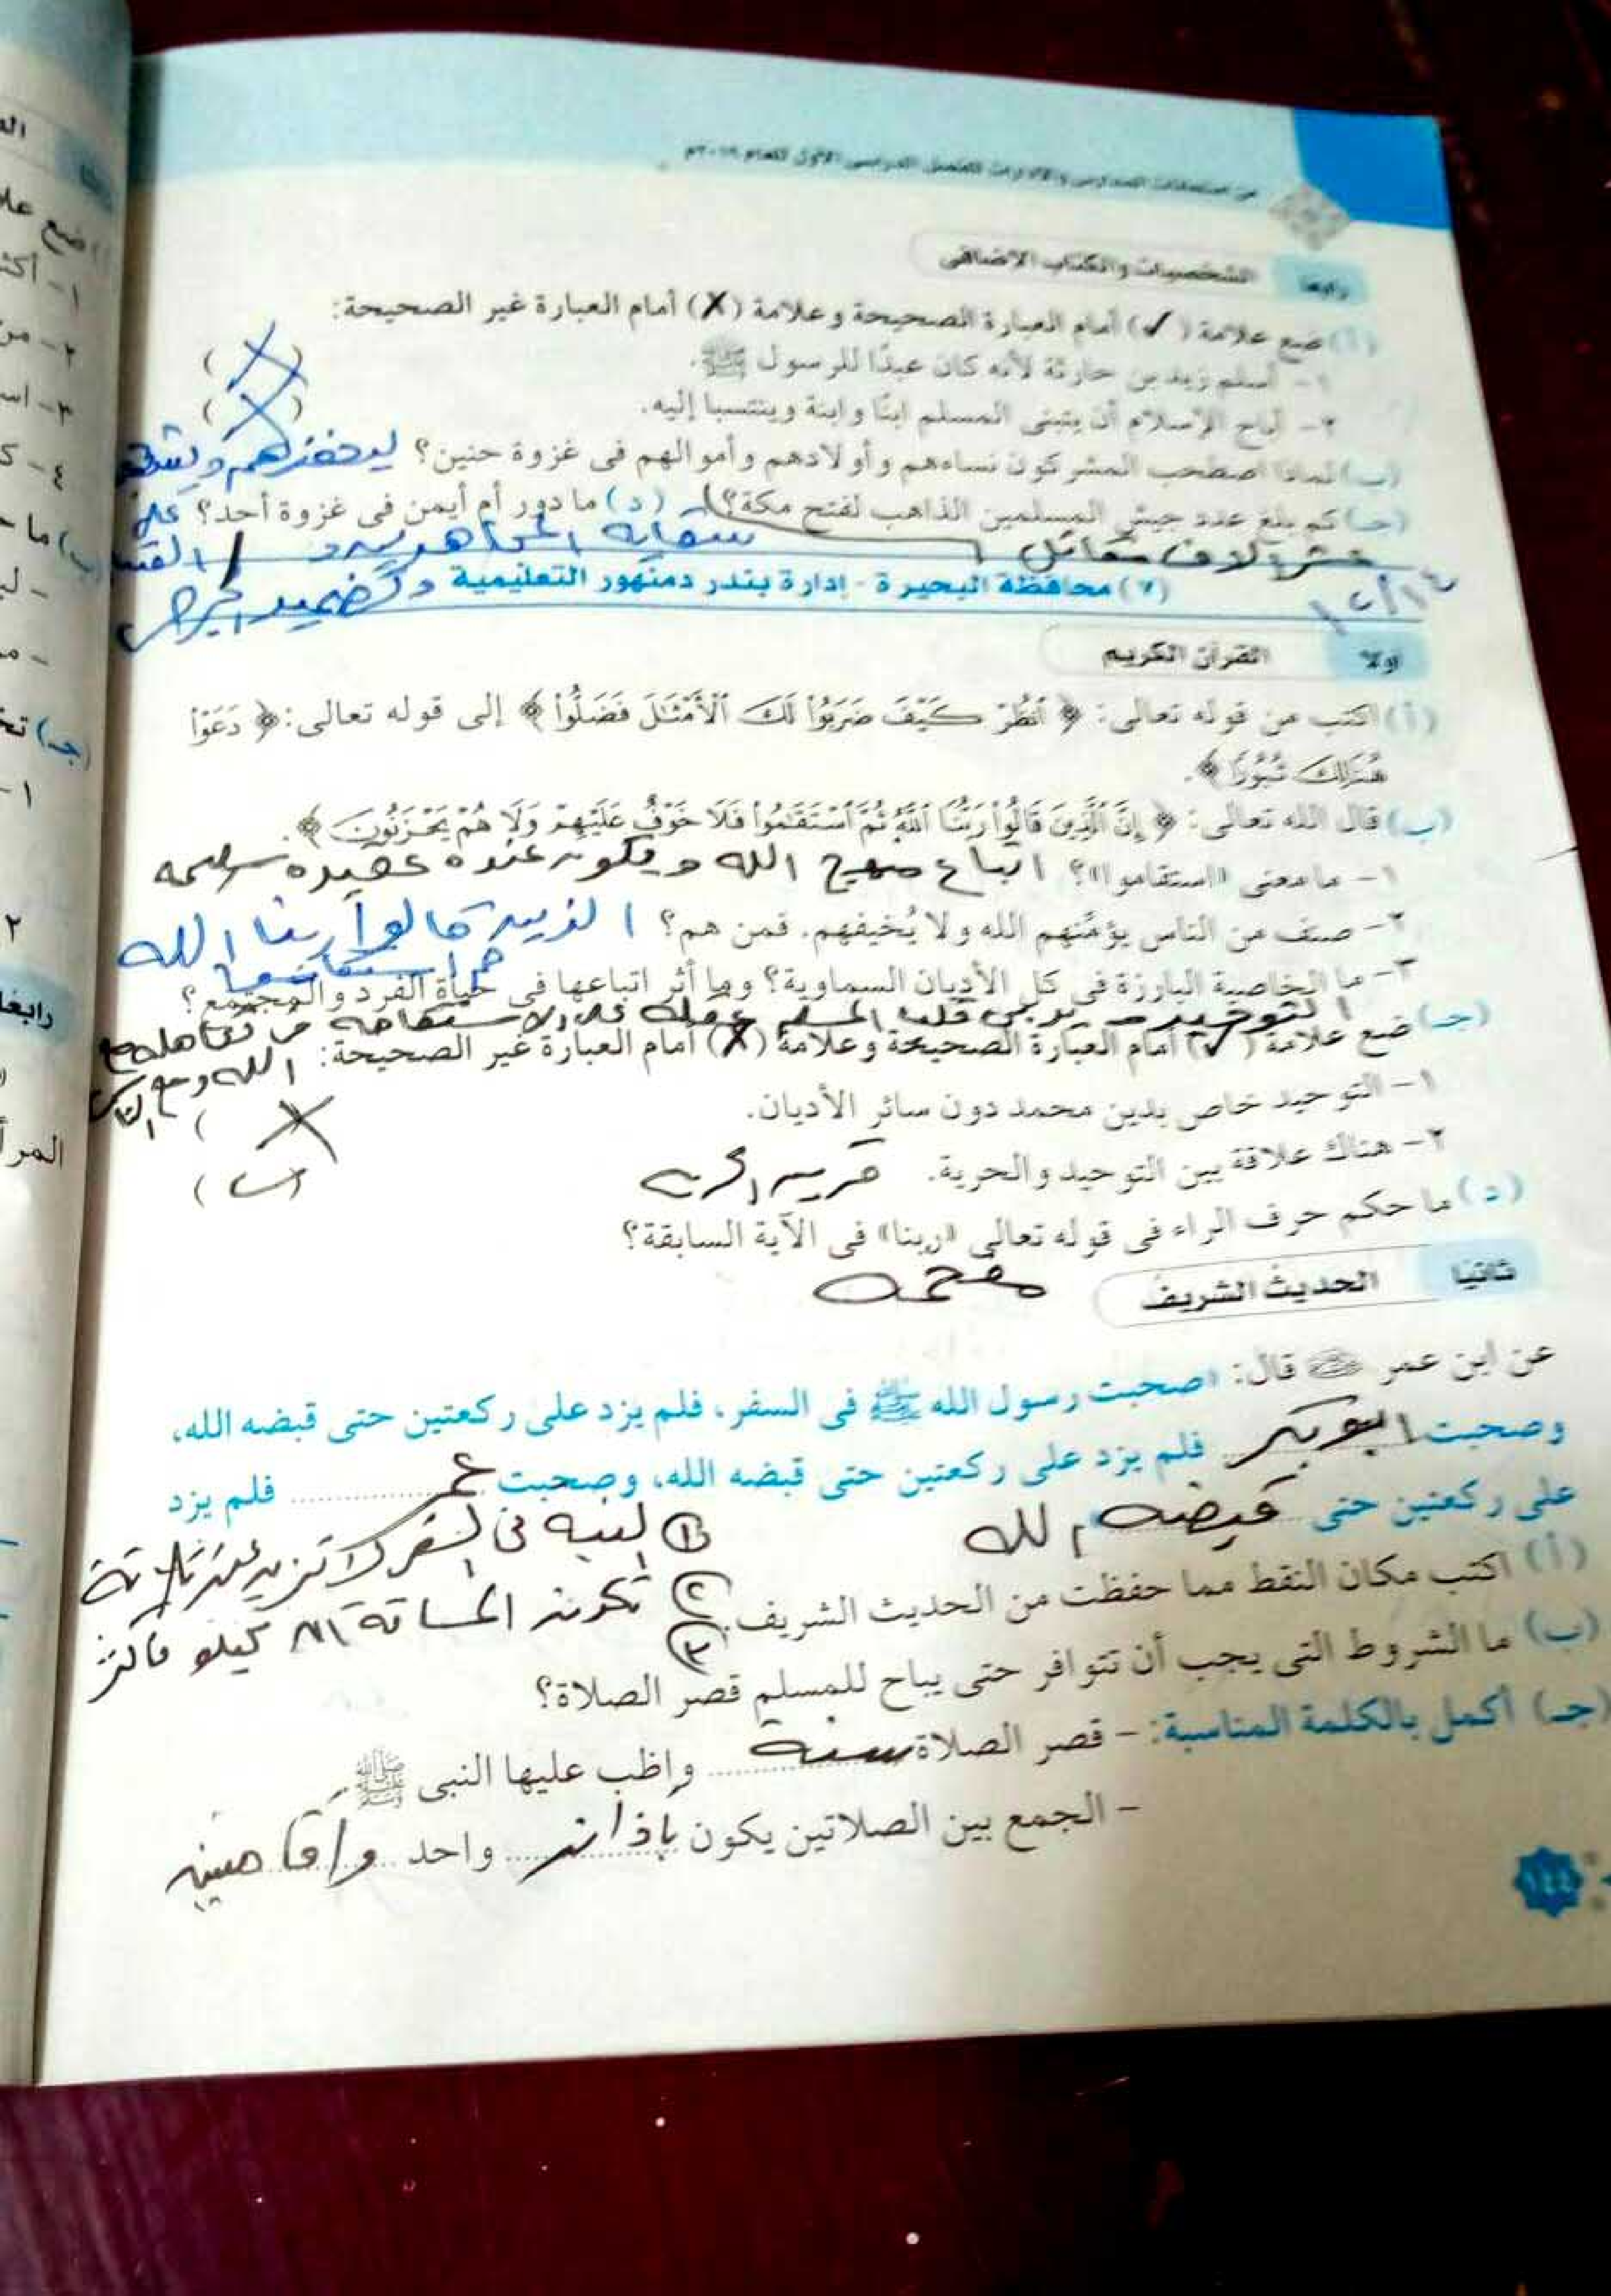 من امتحانات المدارس والإدارات للفصل الدراسى الأول للعام ٢٠١٩م
رابعا الشخصيات والكتاب الإضافى
(أ) ضع علامة (✓) أمام العبارة الصحيحة وعلامة (✗) أمام العبارة غير الصحيحة:
١- أسلم زيد بن حارثة لأنه كان عبدًا للرسول ﷺ. (X)
٢- أباح الإسلام أن يتبنى المسلم ابنًا وابنة وينتسبا إليه. (X)
(ب) لماذا اصطحب المشركون نساءهم وأولادهم وأموالهم فى غزوة حنين؟ ليحفزهم
(جـ) كم بلغ عدد جيش المسلمين الذاهب لفتح مكة؟ (د) ما دور أم أيمن فى غزوة أحد؟ على
عشر آلاف مقاتل سقاية المجاهدين
(٧) محافظة البحيرة - إدارة بندر دمنهور التعليمية
أولا القرآن الكريم
(أ) اكتب من قوله تعالى: ﴿ ٱنظُرْ كَيْفَ ضَرَبُوا۟ لَكَ ٱلْأَمْثَٰلَ فَضَلُّوا۟ ﴾ إلى قوله تعالى: ﴿ دَعَوْا۟
هُنَالِكَ ثُبُورًا ﴾.
(ب) قال الله تعالى: ﴿ إِنَّ ٱلَّذِينَ قَالُوا۟ رَبُّنَا ٱللَّهُ ثُمَّ ٱسْتَقَٰمُوا۟ فَلَا خَوْفٌ عَلَيْهِمْ وَلَا هُمْ يَحْزَنُونَ ﴾.
١- ما معنى «استقاموا»؟ اتباع منهج الله ويكون عنده عقيده سليمه
٢- صنف من الناس يؤمِّنهم الله ولا يُخيفهم. فمن هم؟ الذين قالوا ربنا الله
ثم استقاموا
٣- ما الخاصية البارزة فى كل الأديان السماوية؟ وما أثر اتباعها فى حياة الفرد والمجتمع؟
التوحيد - المسلم على الاستقامة
(جـ) ضع علامة (✓) أمام العبارة الصحيحة وعلامة (✗) أمام العبارة غير الصحيحة: الله ومع الناس
١- التوحيد خاص بدين محمد دون سائر الأديان. (X)
٢- هناك علاقة بين التوحيد والحرية. (✓)
(د) ما حكم حرف الراء فى قوله تعالى «ربنا» فى الآية السابقة؟
مفخمه
ثانيا الحديث الشريف
عن ابن عمر قال: «صحبت رسول الله ﷺ فى السفر، فلم يزد على ركعتين حتى قبضه الله،
وصحبت ابو بكر فلم يزد على ركعتين حتى قبضه الله، وصحبت عمر فلم يزد
على ركعتين حتى قبضه الله
(أ) اكتب مكان النقط مما حفظت من الحديث الشريف.
① النيه فى السفر لا تزيد عن ثلاثة
② تكون المسافة ٨١ كيلو فأكثر
③
(ب) ما الشروط التى يجب أن تتوافر حتى يباح للمسلم قصر الصلاة؟
(جـ) أكمل بالكلمة المناسبة: - قصر الصلاة سنة واظب عليها النبى ﷺ
- الجمع بين الصلاتين يكون بأذان واحد وإقامتين
١٤٤